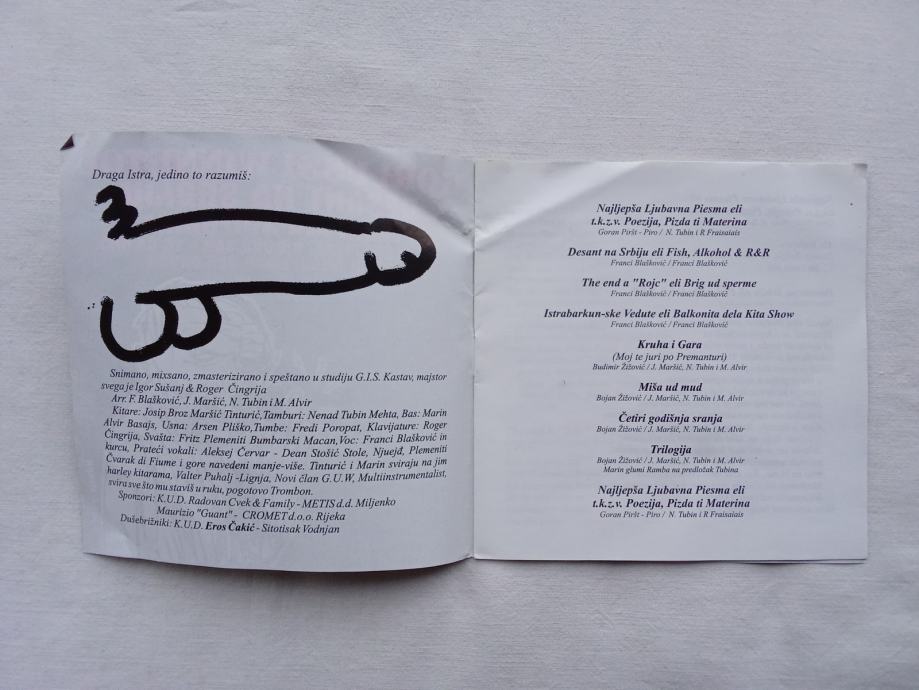 Draga Istra, jedino to razumiš:
Snimano, mixsano, zmasterizirano i speštano u studiju G.I.S. Kastav, majstor
svega je Igor Sušanj & Roger Čingrija
Arr. F. Blašković, J. Maršić, N. Tubin i M. Alvir
Kitare: Josip Broz Maršić Tinturić, Tamburi: Nenad Tubin Mehta, Bas: Marin
Alvir Basajs, Usna: Arsen Pliško, Tumbe: Fredi Poropat, Klavijature: Roger
Čingrija, Svašta: Fritz Plemeniti Bumbarski Macan, Voc: Franci Blašković in
kurcu, Prateći vokali: Aleksej Červar - Dean Stošić Stole, Njuejđ, Plemeniti
Čvarak di Fiume i gore navedeni manje-više. Tinturić i Marin sviraju na jim
harley kitarama, Valter Puhalj -Lignja, Novi član G.U.W, Multiinstrumentalist,
svira sve što mu staviš u ruku, pogotovo Trombon.
Sponzori: K.U.D. Radovan Cvek & Family - METIS d.d. Miljenko
Maurizio "Guant" - CROMET d.o.o. Rijeka
Dušebrižniki: K.U.D. Eros Čakić - Sitotisak Vodnjan
Najljepša Ljubavna Piesma eli
t.k.z.v. Poezija, Pizda ti Materina
Goran Piršt - Piro / N. Tubin i R Fraisaiais
Desant na Srbiju eli Fish, Alkohol & R&R
Franci Blašković / Franci Blašković
The end a "Rojc" eli Brig ud sperme
Franci Blašković / Franci Blašković
Istrabarkun-ske Vedute eli Balkonita dela Kita Show
Franci Blašković / Franci Blašković
Kruha i Gara
(Moj te juri po Premanturi)
Budimir Žižović / J. Maršić, N. Tubin i M. Alvir
Miša ud mud
Bojan Žižović / J. Maršić, N. Tubin i M. Alvir
Četiri godišnja sranja
Bojan Žižović / J. Maršić, N. Tubin i M. Alvir
Trilogija
Bojan Žižović / J. Maršić, N. Tubin i M. Alvir
Marin glumi Ramba na predložak Tubina
Najljepša Ljubavna Piesma eli
t.k.z.v. Poezija, Pizda ti Materina
Goran Piršt - Piro / N. Tubin i R Fraisaiais